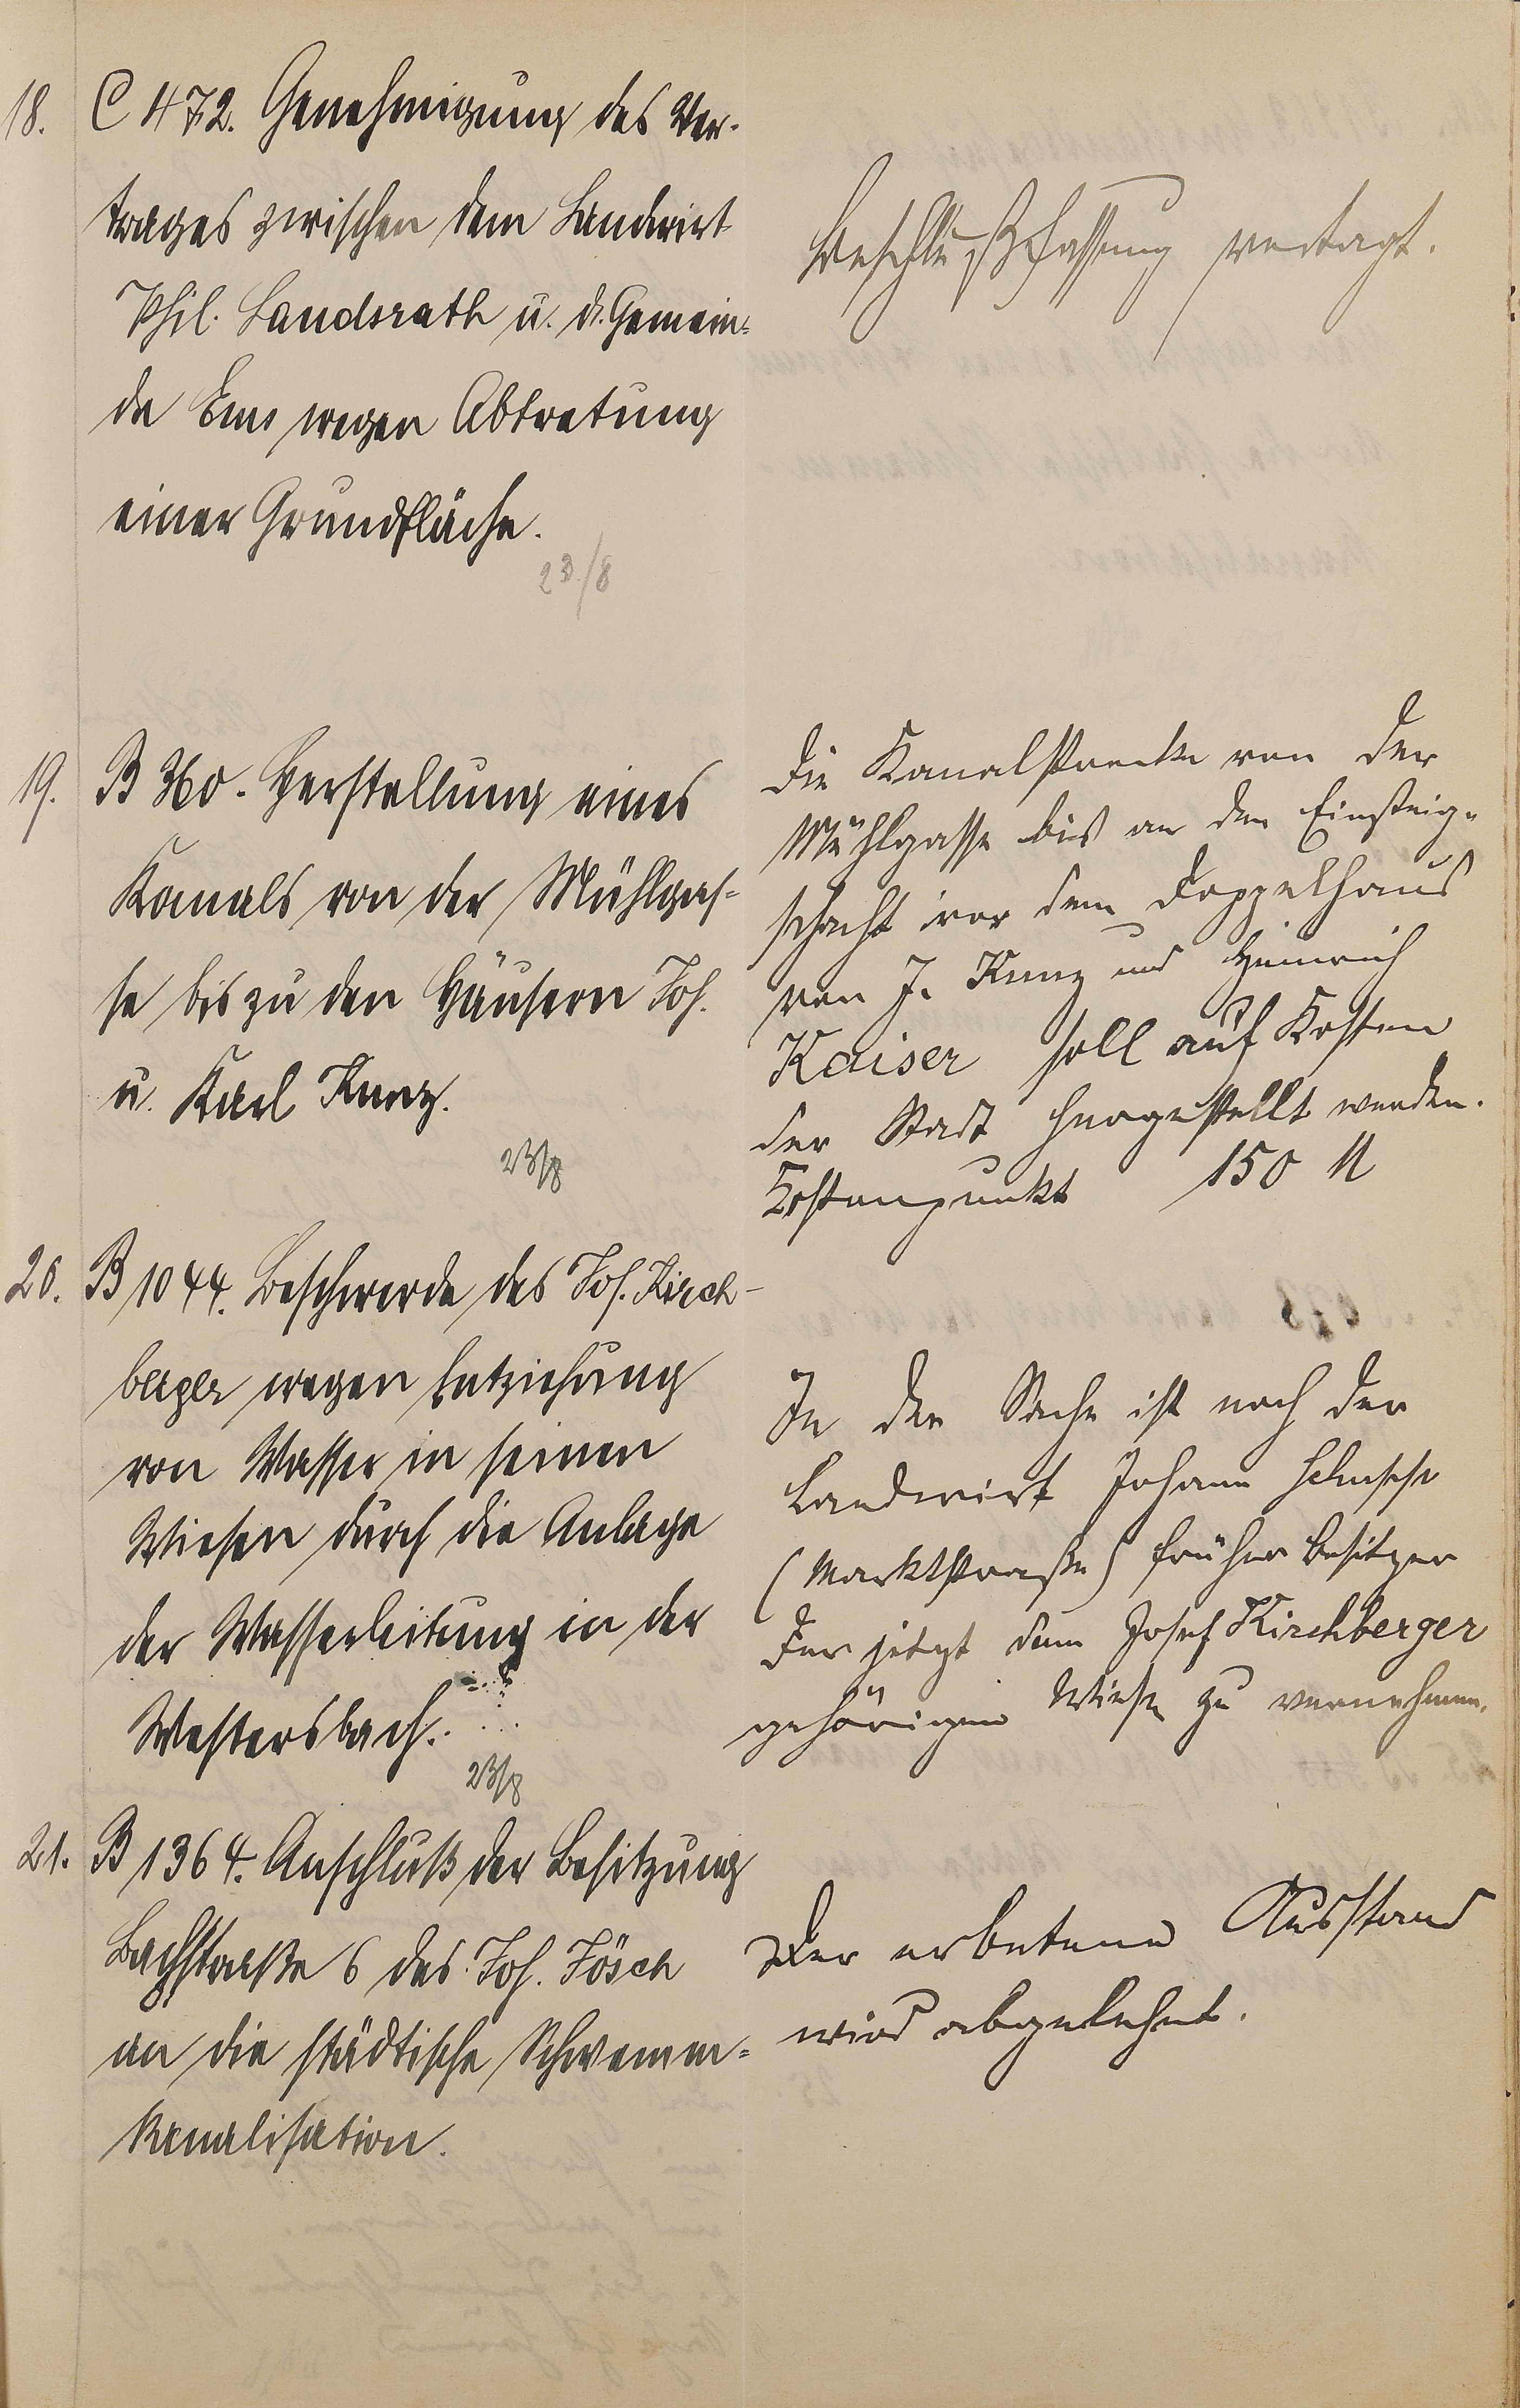 18. C 472. Genehmigung des Ver-
trages zwischen dem Landwirt
Phil. Landsrath u. d. Gemein-
de Ems wegen Abtretung
einer Grundfläche.
23/8
Beschlußfassung vertagt.
19. B 360. Herstellung eines
Kanals von der Mühlgas-
se bis zu den Häusern Joh.
u. Karl Kunz.
23/8
Die Kanalstrecke von der
Mühlgasse bis an den Einsteig-
schacht vor dem Doppelhaus
von J. Kunz und Heinrich
Kaiser soll auf Kosten
der Stadt hergestellt werden.
Kostenpunkt 150 M
20. B 1044. Beschwerde des Jos. Kirch-
berger wegen Entziehung
von Wasser in seinen
Wiesen durch die Anlage
der Wasserleitung in der
Westersbach.
23/8
In der Sache ist noch der
Landwirt Johann
(Marktstraße) früher Besitzer
der jetzt dem Josef Kirchberger
gehörigen Wiese zu vernehmen.
21. B 1364. Anschluß der Besitzung
Bachstraße 6 des Jos. Jösch
an die städtische Schwemm-
kanalisation.
Der erbetene Ausstand
wird abgelehnt.